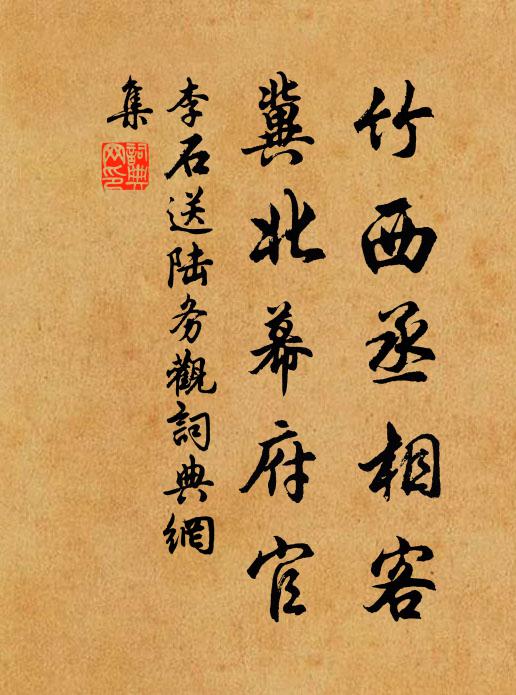 竹西丞相客
冀北幕府官
李石送陸务觀詞典網
集
詞典
网印